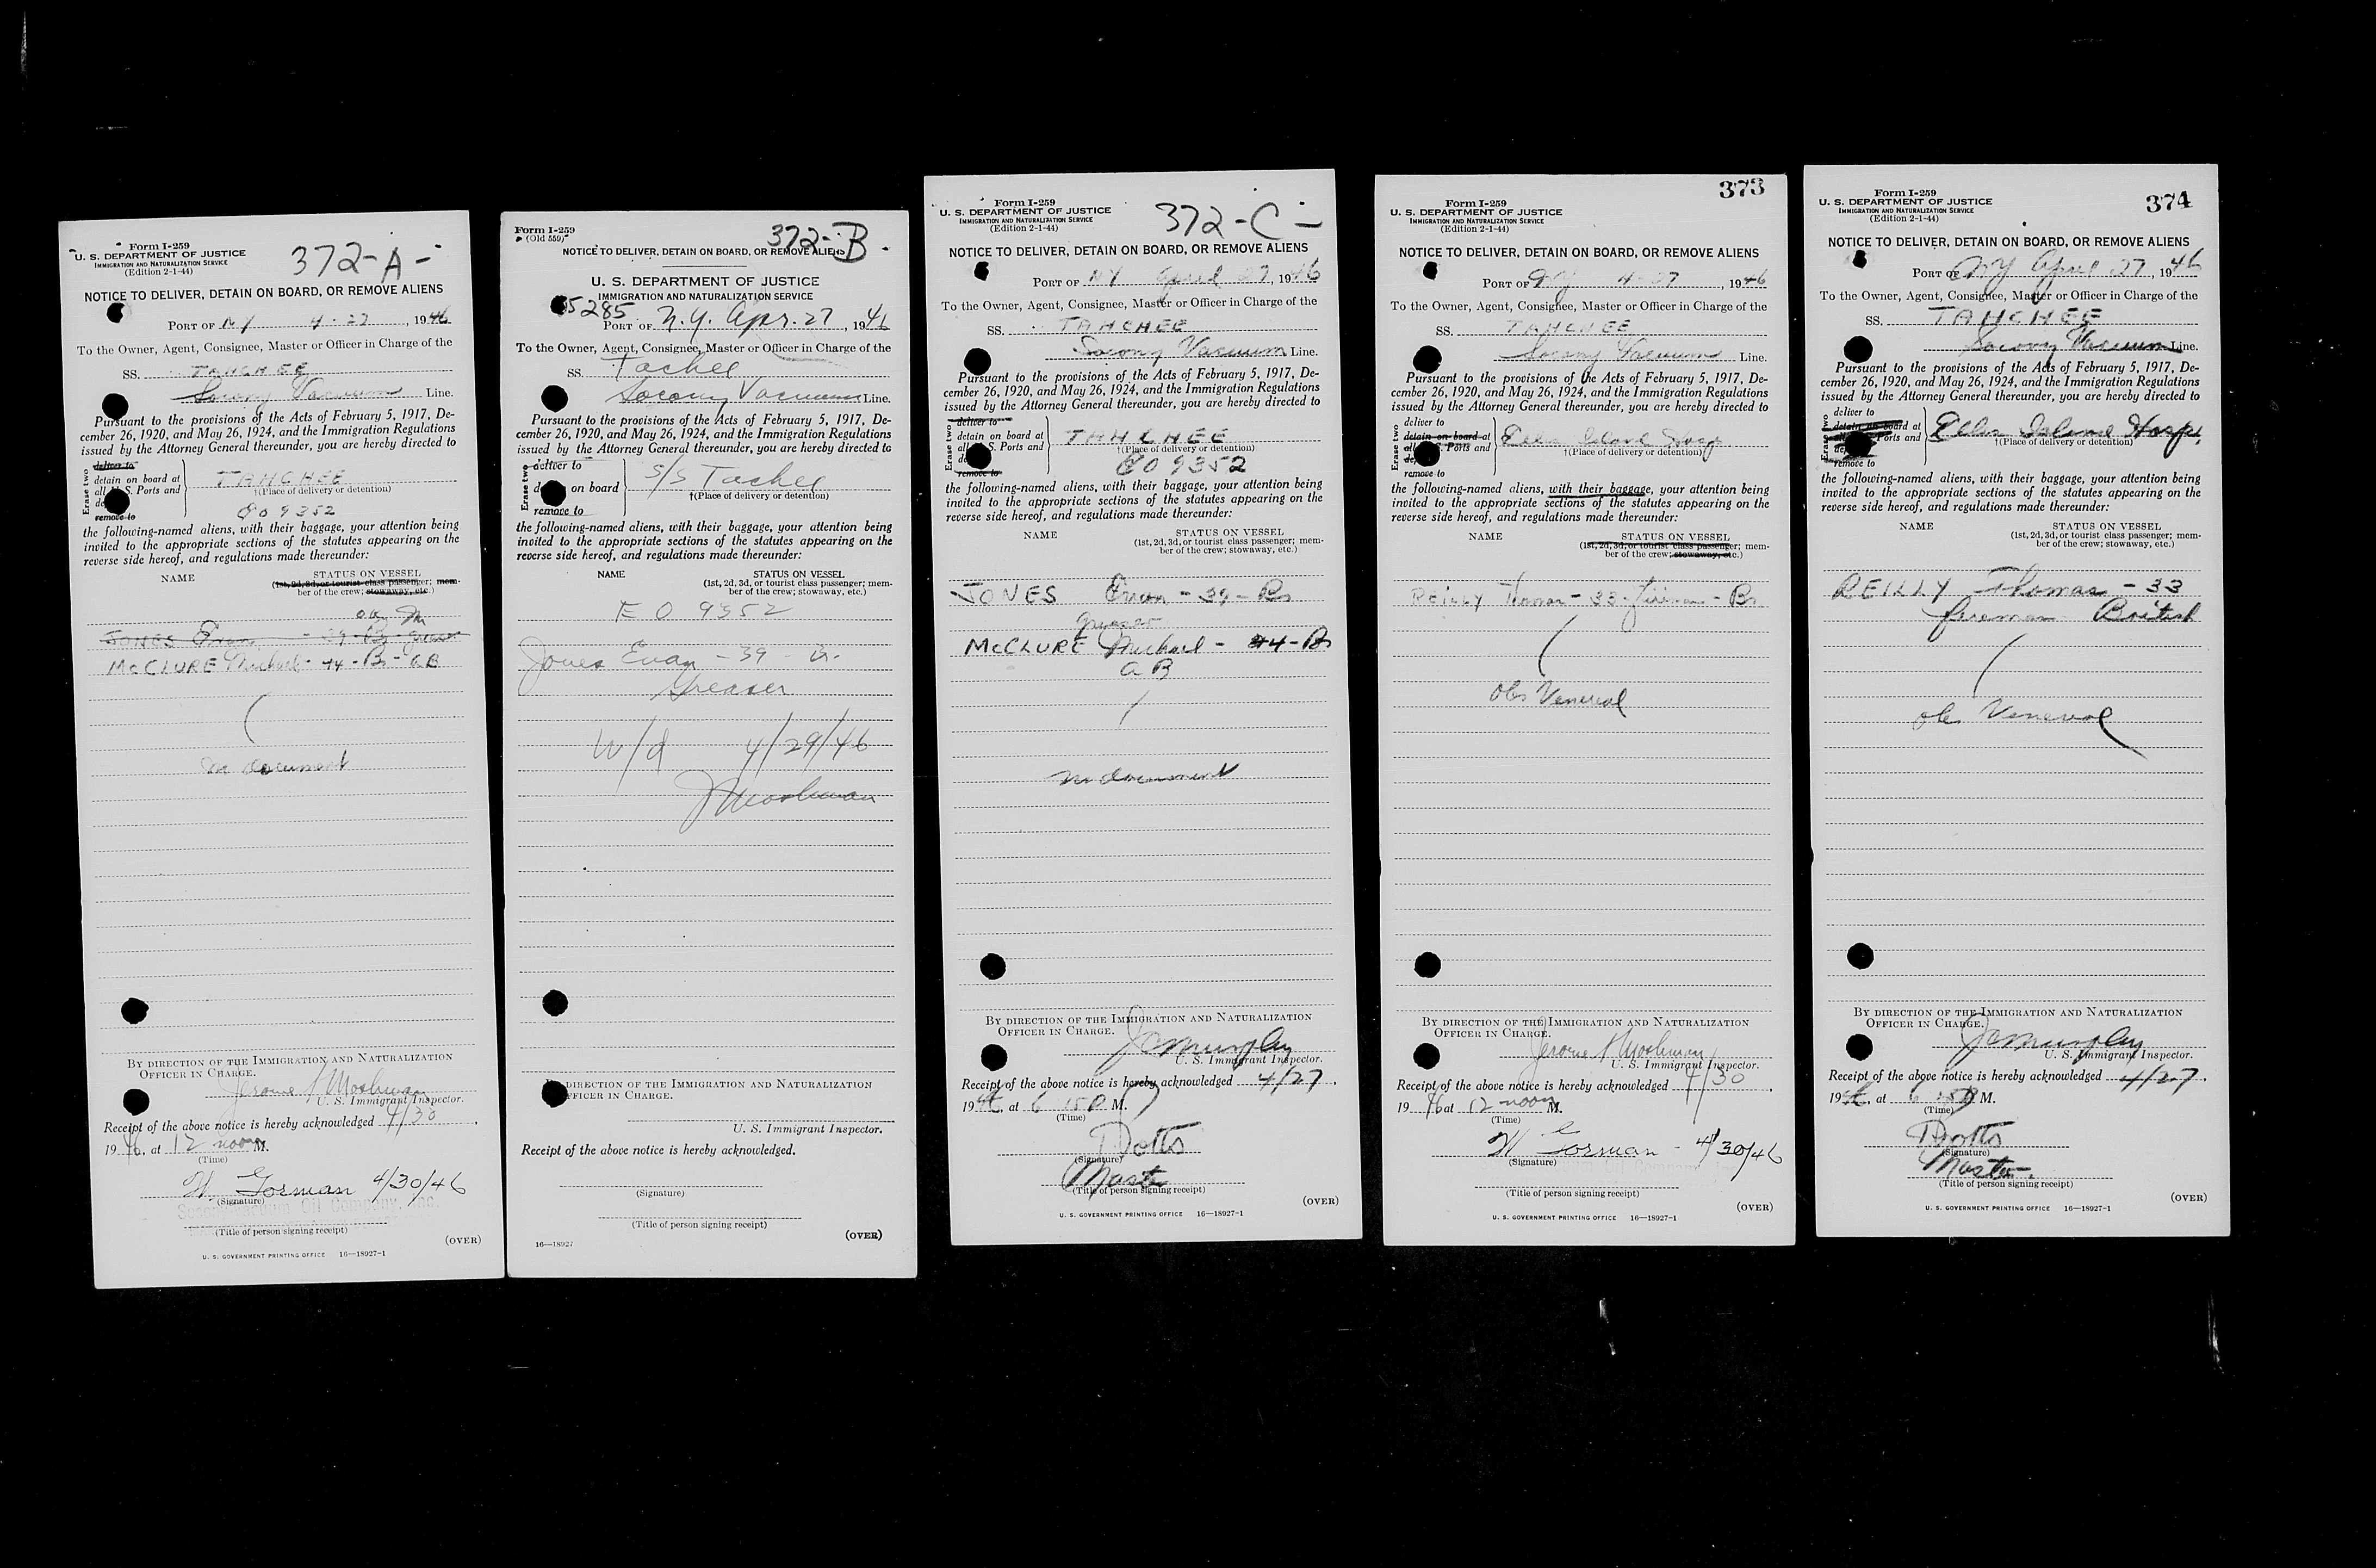 Form I-259
U. S. DEPARTMENT OF JUSTICE
IMMIGRATION AND NATURALIZATION SERVICE
(Edition 2-1-44)
372-A-
NOTICE TO DELIVER, DETAIN ON BOARD, OR REMOVE ALIENS
PORT OF NY 4-27, 1946
To the Owner, Agent, Consignee, Master or Officer in Charge of the
SS. TAHCHEE
Socony Vacuum Line.
Pursuant to the provisions of the Acts of February 5, 1917, De-
cember 26, 1920, and May 26, 1924, and the Immigration Regulations
issued by the Attorney General thereunder, you are hereby directed to
Erase two
deliver to
detain on board at
all U. S. Ports and
remove to
TAHCHEE
†(Place of delivery or detention)
EO 9352
the following-named aliens, with their baggage, your attention being
invited to the appropriate sections of the statutes appearing on the
reverse side hereof, and regulations made thereunder:
NAME STATUS ON VESSEL
(1st, 2d, 3d, or tourist class passenger; mem-
ber of the crew; stowaway, etc.)
JONES Evan - 39 - Br - greaser
McCLURE Michael - 44 - Br - AB
no document
BY DIRECTION OF THE IMMIGRATION AND NATURALIZATION
OFFICER IN CHARGE.
Jerome
U. S. Immigrant Inspector.
Receipt of the above notice is hereby acknowledged 4/30,
1946, at 12 noon M.
(Time)
W. Gorman 4/30/46
(Signature)
Socony-Vacuum Oil Company, Inc.
(Title of person signing receipt)
(OVER)
U. S. GOVERNMENT PRINTING OFFICE 16—18927-1
Form I-259
(Old 559)
372-B-
NOTICE TO DELIVER, DETAIN ON BOARD, OR REMOVE ALIENS
U. S. DEPARTMENT OF JUSTICE
IMMIGRATION AND NATURALIZATION SERVICE
5285
PORT OF N.Y. Apr. 27, 1946
To the Owner, Agent, Consignee, Master or Officer in Charge of the
SS. Tachee
Socony Vacuum Line.
Pursuant to the provisions of the Acts of February 5, 1917, De-
cember 26, 1920, and May 26, 1924, and the Immigration Regulations
issued by the Attorney General thereunder, you are hereby directed to
Erase two
deliver to
on board
remove to
S/S Tachee
†(Place of delivery or detention)
the following-named aliens, with their baggage, your attention being
invited to the appropriate sections of the statutes appearing on the
reverse side hereof, and regulations made thereunder:
NAME STATUS ON VESSEL
(1st, 2d, 3d, or tourist class passenger; mem-
ber of the crew; stowaway, etc.)
EO 9352
Jones Evan - 39 - Br.
Greaser
W/d 4/29/46
DIRECTION OF THE IMMIGRATION AND NATURALIZATION
OFFICER IN CHARGE.
U. S. Immigrant Inspector.
Receipt of the above notice is hereby acknowledged.
(Signature)
(Title of person signing receipt)
16—18927
(OVER)
Form I-259
U. S. DEPARTMENT OF JUSTICE
IMMIGRATION AND NATURALIZATION SERVICE
(Edition 2-1-44)
372-C-
NOTICE TO DELIVER, DETAIN ON BOARD, OR REMOVE ALIENS
PORT OF NY April 27, 1946
To the Owner, Agent, Consignee, Master or Officer in Charge of the
SS. TAHCHEE
Socony Vacuum Line.
Pursuant to the provisions of the Acts of February 5, 1917, De-
cember 26, 1920, and May 26, 1924, and the Immigration Regulations
issued by the Attorney General thereunder, you are hereby directed to
Erase two
deliver to
detain on board at
all U. S. Ports and
remove to
TAHCHEE
†(Place of delivery or detention)
EO 9352
the following-named aliens, with their baggage, your attention being
invited to the appropriate sections of the statutes appearing on the
reverse side hereof, and regulations made thereunder:
NAME STATUS ON VESSEL
(1st, 2d, 3d, or tourist class passenger; mem-
ber of the crew; stowaway, etc.)
JONES Evan - 39 - Br
greaser
McCLURE Michael - 44 - Br
AB
no document
BY DIRECTION OF THE IMMIGRATION AND NATURALIZATION
OFFICER IN CHARGE.
JC Murphy
U. S. Immigrant Inspector.
Receipt of the above notice is hereby acknowledged 4/27,
1946, at 6 15 P M.
(Time)
(Signature)
Master
(Title of person signing receipt)
(OVER)
U. S. GOVERNMENT PRINTING OFFICE 16—18927-1
373
Form I-259
U. S. DEPARTMENT OF JUSTICE
IMMIGRATION AND NATURALIZATION SERVICE
(Edition 2-1-44)
NOTICE TO DELIVER, DETAIN ON BOARD, OR REMOVE ALIENS
PORT OF NY 4-27, 1946
To the Owner, Agent, Consignee, Master or Officer in Charge of the
SS. TAHCHEE
Socony Vacuum Line.
Pursuant to the provisions of the Acts of February 5, 1917, De-
cember 26, 1920, and May 26, 1924, and the Immigration Regulations
issued by the Attorney General thereunder, you are hereby directed to
Erase two
deliver to
detain on board at
all U. S. Ports and
remove to
Ellis Island Hosp
†(Place of delivery or detention)
the following-named aliens, with their baggage, your attention being
invited to the appropriate sections of the statutes appearing on the
reverse side hereof, and regulations made thereunder:
NAME STATUS ON VESSEL
(1st, 2d, 3d, or tourist class passenger; mem-
ber of the crew; stowaway, etc.)
REILLY Thomas - 33 - fireman - Br
obs Venereal
BY DIRECTION OF THE IMMIGRATION AND NATURALIZATION
OFFICER IN CHARGE.
Jerome
U. S. Immigrant Inspector.
Receipt of the above notice is hereby acknowledged 4/30,
1946 at 12 noon M.
(Time)
W Gorman - 4/30/46
(Signature)
(Title of person signing receipt)
(OVER)
U. S. GOVERNMENT PRINTING OFFICE 16—18927-1
Form I-259
U. S. DEPARTMENT OF JUSTICE
IMMIGRATION AND NATURALIZATION SERVICE
(Edition 2-1-44)
374
NOTICE TO DELIVER, DETAIN ON BOARD, OR REMOVE ALIENS
PORT OF NY April 27, 1946
To the Owner, Agent, Consignee, Master or Officer in Charge of the
SS. TAHCHEE
Socony Vacuum Line.
Pursuant to the provisions of the Acts of February 5, 1917, De-
cember 26, 1920, and May 26, 1924, and the Immigration Regulations
issued by the Attorney General thereunder, you are hereby directed to
Erase two
deliver to
detain on board at
Ports and
remove to
Ellis Island Hosp.
†(Place of delivery or detention)
the following-named aliens, with their baggage, your attention being
invited to the appropriate sections of the statutes appearing on the
reverse side hereof, and regulations made thereunder:
NAME STATUS ON VESSEL
(1st, 2d, 3d, or tourist class passenger; mem-
ber of the crew; stowaway, etc.)
REILLY Thomas - 33
fireman British
obs Venereal
BY DIRECTION OF THE IMMIGRATION AND NATURALIZATION
OFFICER IN CHARGE.
JC Murphy
U. S. Immigrant Inspector.
Receipt of the above notice is hereby acknowledged 4/27,
1946, at 6 15 P M.
(Time)
(Signature)
Master
(Title of person signing receipt)
(OVER)
U. S. GOVERNMENT PRINTING OFFICE 16—18927-1